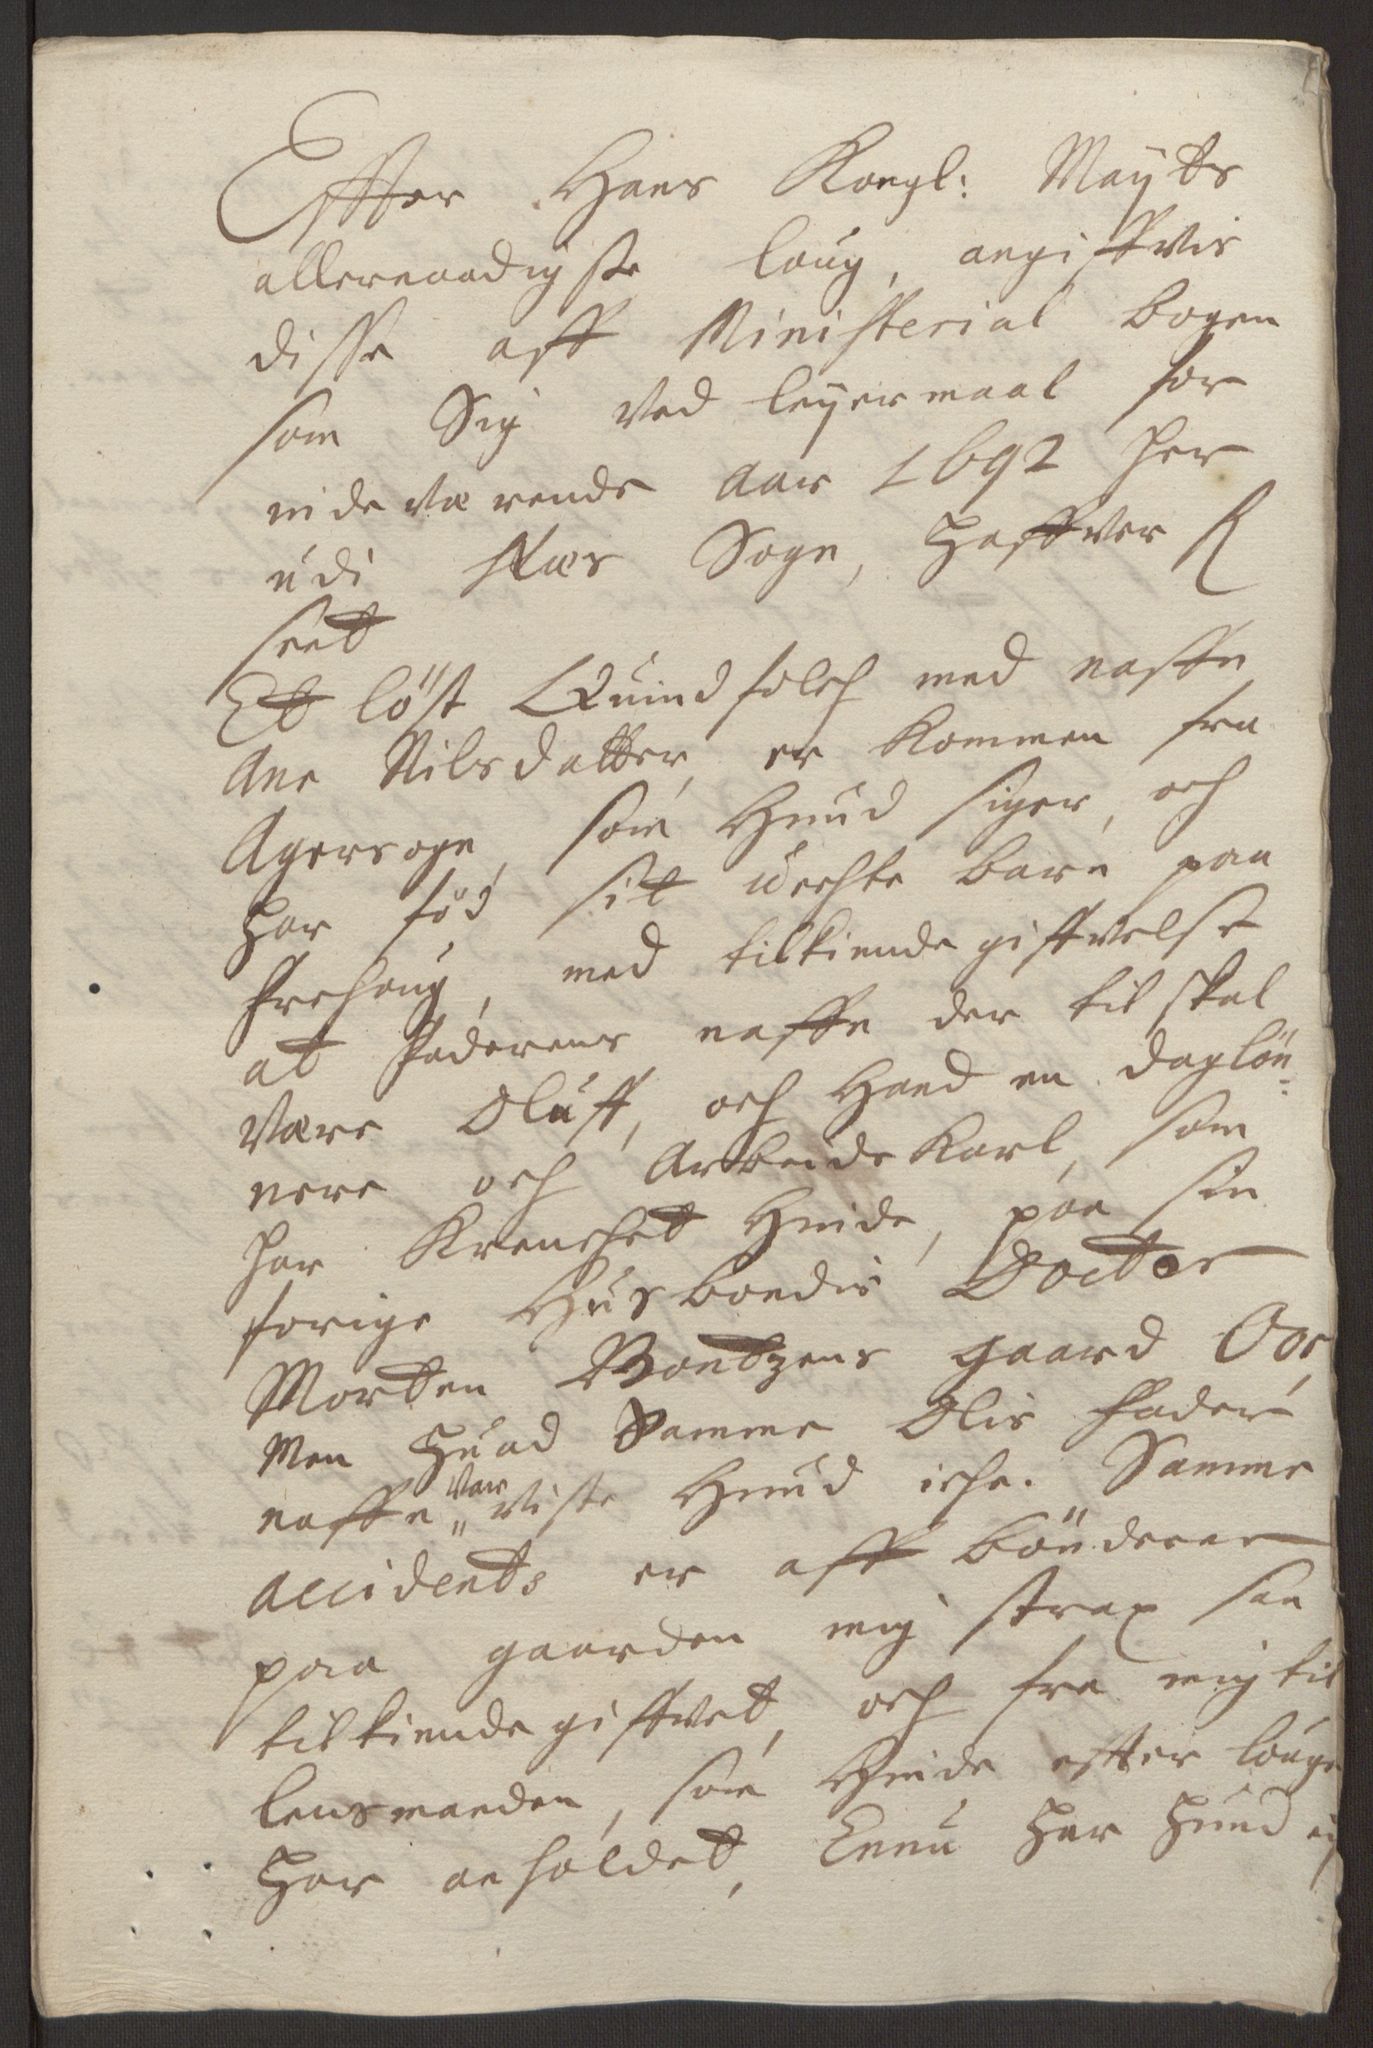 Effter Hans Kongl: Mayts
allernaadigste loug, angifvis
disse aff Ministerial bogen
som Sig ved leyermaal for
inde værende Aar 1692 her
udi Næs Sogn, haffver
seet
Et löst Quindfolch med naffn
Ane Nilsdatter, er kommen fra
Agersogn, som Hund siger, och
har fød sit uechte barn paa
med tilkiende gifvelse
at Faderens naffn der til skal
være Oluff, och Hand en daglön-
nere och Arbeids Karl, som
har krenchet Hinde, paa sin
forige Husbondis Doctor
Morten gaard
Men huad Samme Olis Fader
naffn var viste Hund iche. Samme
accidents er aff bönderne
paa gaarden mig strax saa
tilkiende gifvet, och fra mig til
lensmanden, som Hinde effter lougen
har anholdet, Ennu har hund ej